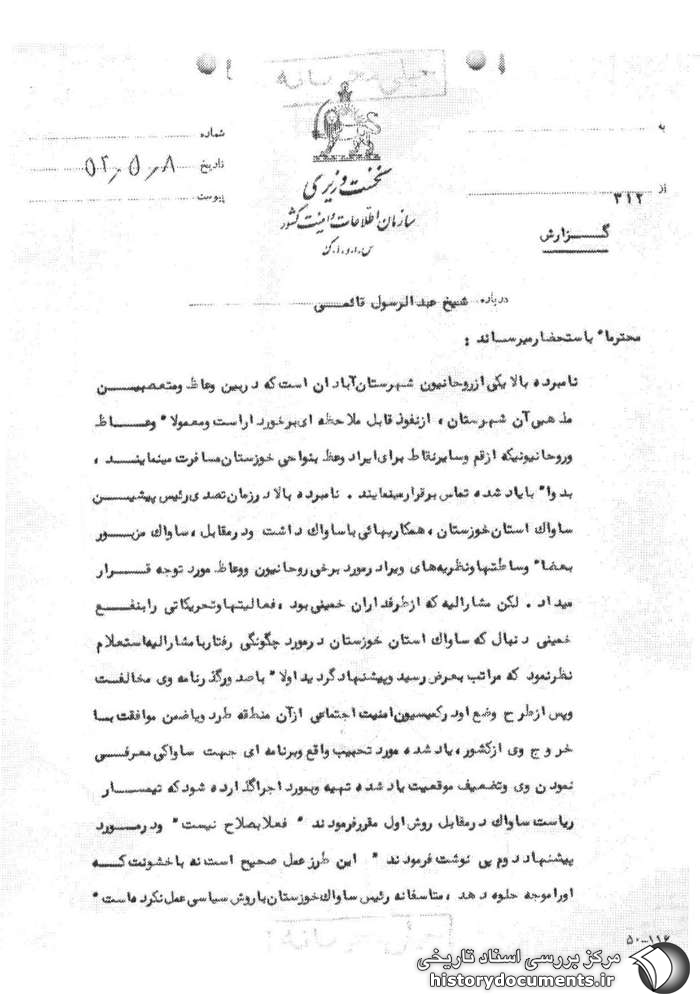 به
شماره
از ۳۱۲
تاریخ ۵۲٫۵٫۸
پیوست
نخست وزیری
سازمان اطلاعات و امنیت کشور
س.ا.و.ا.ک
گزارش
درباره شیخ عبدالرسول قائمی
محترما" باستحضار میرساند :
نامبرده بالا یکی از روحانیون شهرستان آبادان است که در بین وعاظ و متعصبین
مذهبی آن شهرستان ، از نفوذ قابل ملاحظه ای برخوردار است و معمولا" وعاظ
و روحانیونیکه از قم و سایر نقاط برای ایراد وعظ بنواحی خوزستان مسافرت مینمایند ،
بدوا" با یاد شده تماس برقرار مینمایند . نامبرده بالا در زمان تصدی رئیس پیشین
ساواک استان خوزستان ، همکاریهائی با ساواک داشت و در مقابل ، ساواک مزبور
بعضا" وساطتها و نظریه های ویرا در مورد برخی روحانیون و وعاظ مورد توجه قرار
میداد . لکن مشارالیه که از طرفداران خمینی بود ، فعالیتها و تحریکاتی را بنفع
خمینی دنبال که ساواک استان خوزستان در مورد چگونگی رفتار با مشارالیه استعلام
نظر نمود که مراتب بعرض رسید و پیشنهاد گردید اولا" با صدور گذرنامه وی مخالفت
و پس از طرح وضع او در کمیسیون امنیت اجتماعی از آن منطقه طرد و یا ضمن موافقت با
خروج وی از کشور ، یاد شده مورد تحبیب واقع و برنامه ای جهت ساواکی معرفی
نمودن وی و تضعیف موقعیت یاد شده تهیه و بمورد اجرا گذارده شود که تیمسار
ریاست ساواک در مقابل روش اول مقرر فرمودند " فعلا بصلاح نیست " و در مورد
پیشنهاد دوم پی نوشت فرمودند " این طرز عمل صحیح است نه با خشونت که
او را موجه جلوه دهد ، متاسفانه رئیس ساواک خوزستان با روش سیاسی عمل نکرده است "
۵۰-۱۱۶
مرکز بررسی اسناد تاریخی
historydocuments.ir